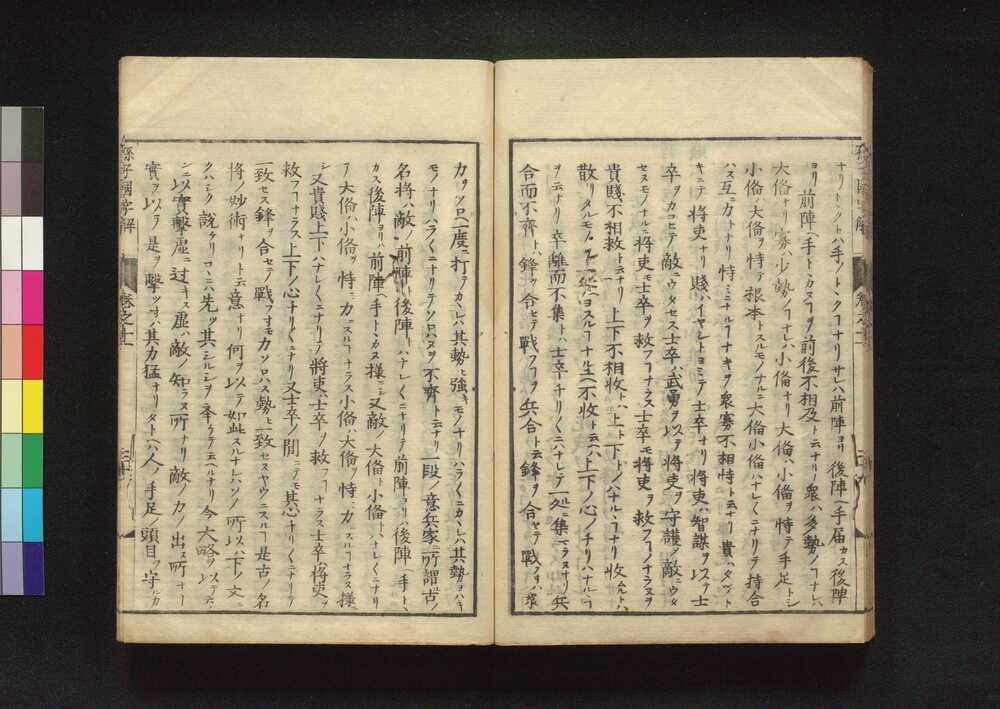 ナリトヽクトハ手ノトヽクフナリサレハ前陣ヨリ後陣ヘ手届カス後陣
ヨリ前陣ヘ手トヽカヌフヲ前後不相及ト云ナリ衆ハ多勢ノフナレハ
大備ナリ寡ハ少勢ノフナレハ小備ナリ大備ハ小備ヲ恃テ手足トシ
小備ハ大備ヲ恃テ根本トスルモノナルニ大備小備ハナレ〱ニナリテ持合
ハス互ニカトナリ恃ミニナルフナキヲ衆寡不相恃ト云ナリ貴ハタツト
キニテ将吏ナリ賤ハイヤシトヨミテ士卒ナリ将吏ハ智謀ヲ以テ士
卒ヲカコヒテ敵ニウタセス士卒ハ武勇ヲ以テ将吏ヲ守護ノ敵ニウタ
セスモノナルニ将吏モ士卒ヲ救フフナラス士卒モ将吏ヲ救フフナラヌヲ
貴賤不相救ト云ナリ上下不相收トハ上ト下トノハナルヽフナリ收ムルトハ
散リタルモノヲ一処ヘヨスルフナルユヘ不收ト云ヘハ上下ノ心ノチリハナルヽフ
ヲ云ナリ卒離而不集トハ士卒チリ〱ニハナレテ一処ニ集ラヌナリ兵
合而不齊トハ鋒ヲ合セテ戰フフヲ兵合ト云鋒ヲ合セテ戰フヲハ衆
力ヲソロヘ一度ニ打テカヽレハ其勢ヒ強キモノナリハラ〱ニカヽレハ其勢ヨハキ
モノナリハラ〱ニナリテソロハヌヲ不齊ト云ナリ一段ノ意兵家ニ所謂古ノ
名将ハ敵ノ前陣ト後陣トハナレ〱ニナリテ前陣ヨリ後陣ヘ手トヽ
カス後陣ヨリハ前陣ヘ手トヽカヌ様ニシ又敵ノ大備ト小備トハナレ〱ニナリ
テ大備ハ小備ヲ恃ミニカヽスルフナラス小備ハ大備ヲ恃ミカヽスルフナラヌ様ニ
シ又貴賤上下ハナレ〱ニナリテ将吏ハ士卒ノ救フフナラス士卒ハ将吏ヲ
救フフナラス上下ノ心ナリ〱ニナリ又士卒ノ間ニテモ其心ナリ〱ニナリテ
一致セス鋒ヲ合セテ戰フオモカソロハス勢ヒ一致セスヤウニスルフ是古ノ名
将ノ妙術ナリト云意ナリ何ヲ以テ如此スルナレハソノ所以ハ下ノ文ニ
クハシク説ケリコヽニハ先ツ其シルシヲ挙ケテ云ヘルナリ今大略ヲ以テ云
シニ以實擊虚ニ過キス虚ハ敵ノ知ラヌ所ナリ敵ノカノ出ヌ所ナリ
實ヲ以テ是ヲ擊ツオハ其力猛ナリタトヘハ人ノ手足ノ頭目ヲ守ルカ
孫子國字解
卷之十一